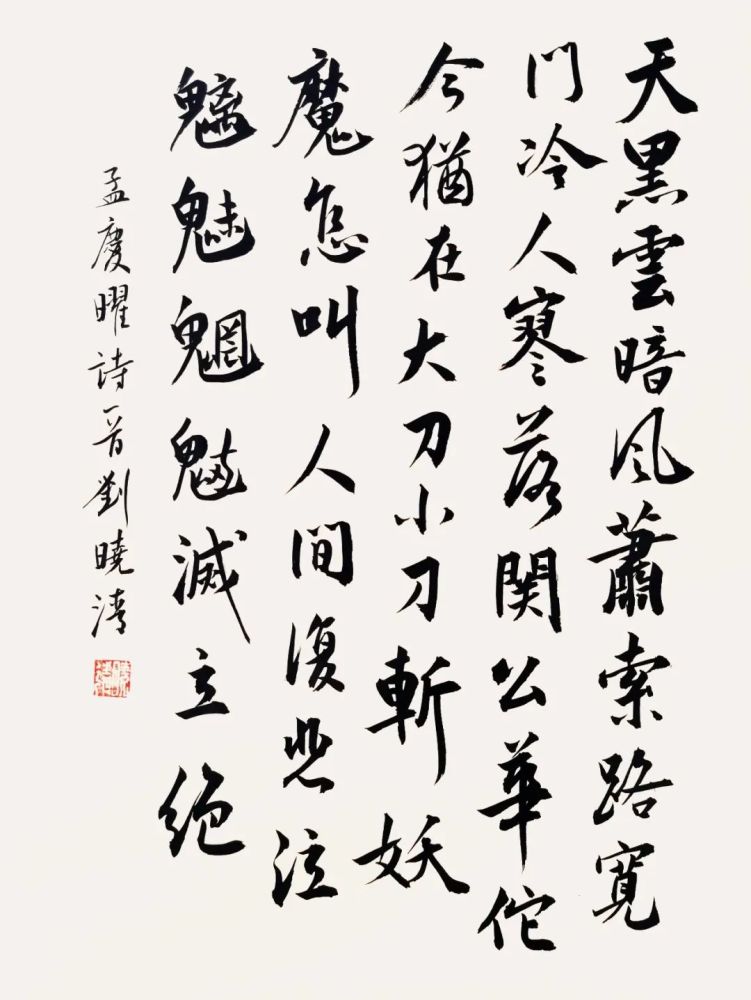 天黑雲暗風蕭索路寬
門冷人寥落関公華佗
今猶在大刀小刀斬妖
魔怎叫人間復悲泣
魑魅魍魎滅立絶
孟慶曜詩一首劉曉清